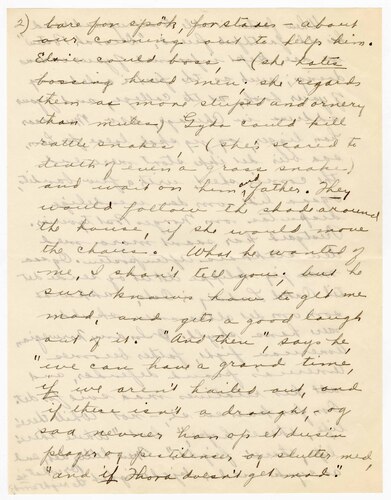 2) bare for spök, for stases - about
our coming out to help him.
Elsie could boss, - (she hates
bossing hired men; she regards
them as more stupid and ornery
than mules) Gyda could kill
rattle snakes (she's scared to
death of even a grass snake)
and wait on him and Father. They
would follow the shade around
the house, if she would move
the chairs. What he wanted of
me, I shan't tell you; but he
sure knows how to get me
mad, and gets a good laugh
out of it. "And then", says he,
"we can have a grand time,
if we aren't hailed out, and
if there isn't a draught, - og
saa nevner han op et dusin
plager og pestilenser, og slutter med,
"and if Thora doesn't get mad."